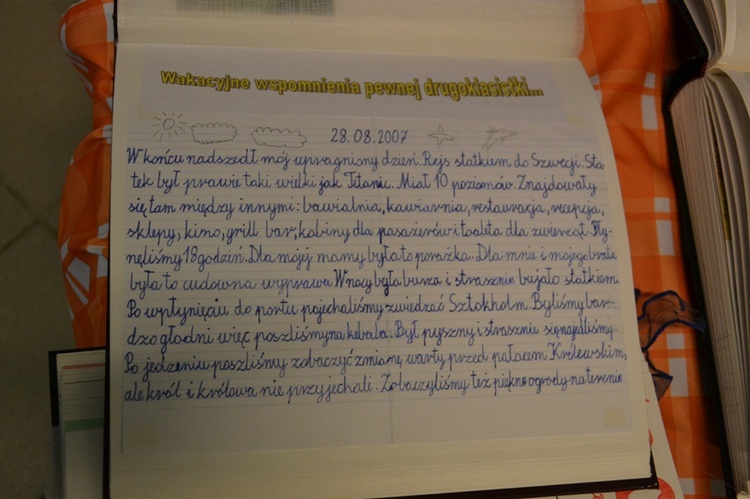 Wakacyjne wspomnienia pewnej drugoklasistki...
28.08.2007
W końcu nadszedł mój upragniony dzień. Rejs statkiem do Szwecji. Sta
tek był prawie taki wielki jak Titanic. Miał 10 poziomów. Znajdowały
się tam między innymi: bawialnia, kawiarnia, restauracja, recepcja,
sklepy, kino, grill bar, kabiny dla pasażerów i toaleta dla zwierząt. Pły-
nęliśmy 18 godzin. Dla mojej mamy była to porażka. Dla mnie i mojego brata
była to cudowna wyprawa. W nocy była burza i strasznie bujało statkiem.
Po wpłynięciu do portu pojechaliśmy zwiedzać Sztokholm. Byliśmy bar-
dzo głodni więc poszliśmy na kebaba. Był pyszny i strasznie się najedliśmy.
Po jedzeniu poszliśmy zobaczyć zmianę warty przed pałacem Królewskim,
ale król i królowa nie przyjechali. Zobaczyliśmy też piękne ogrody na terenie